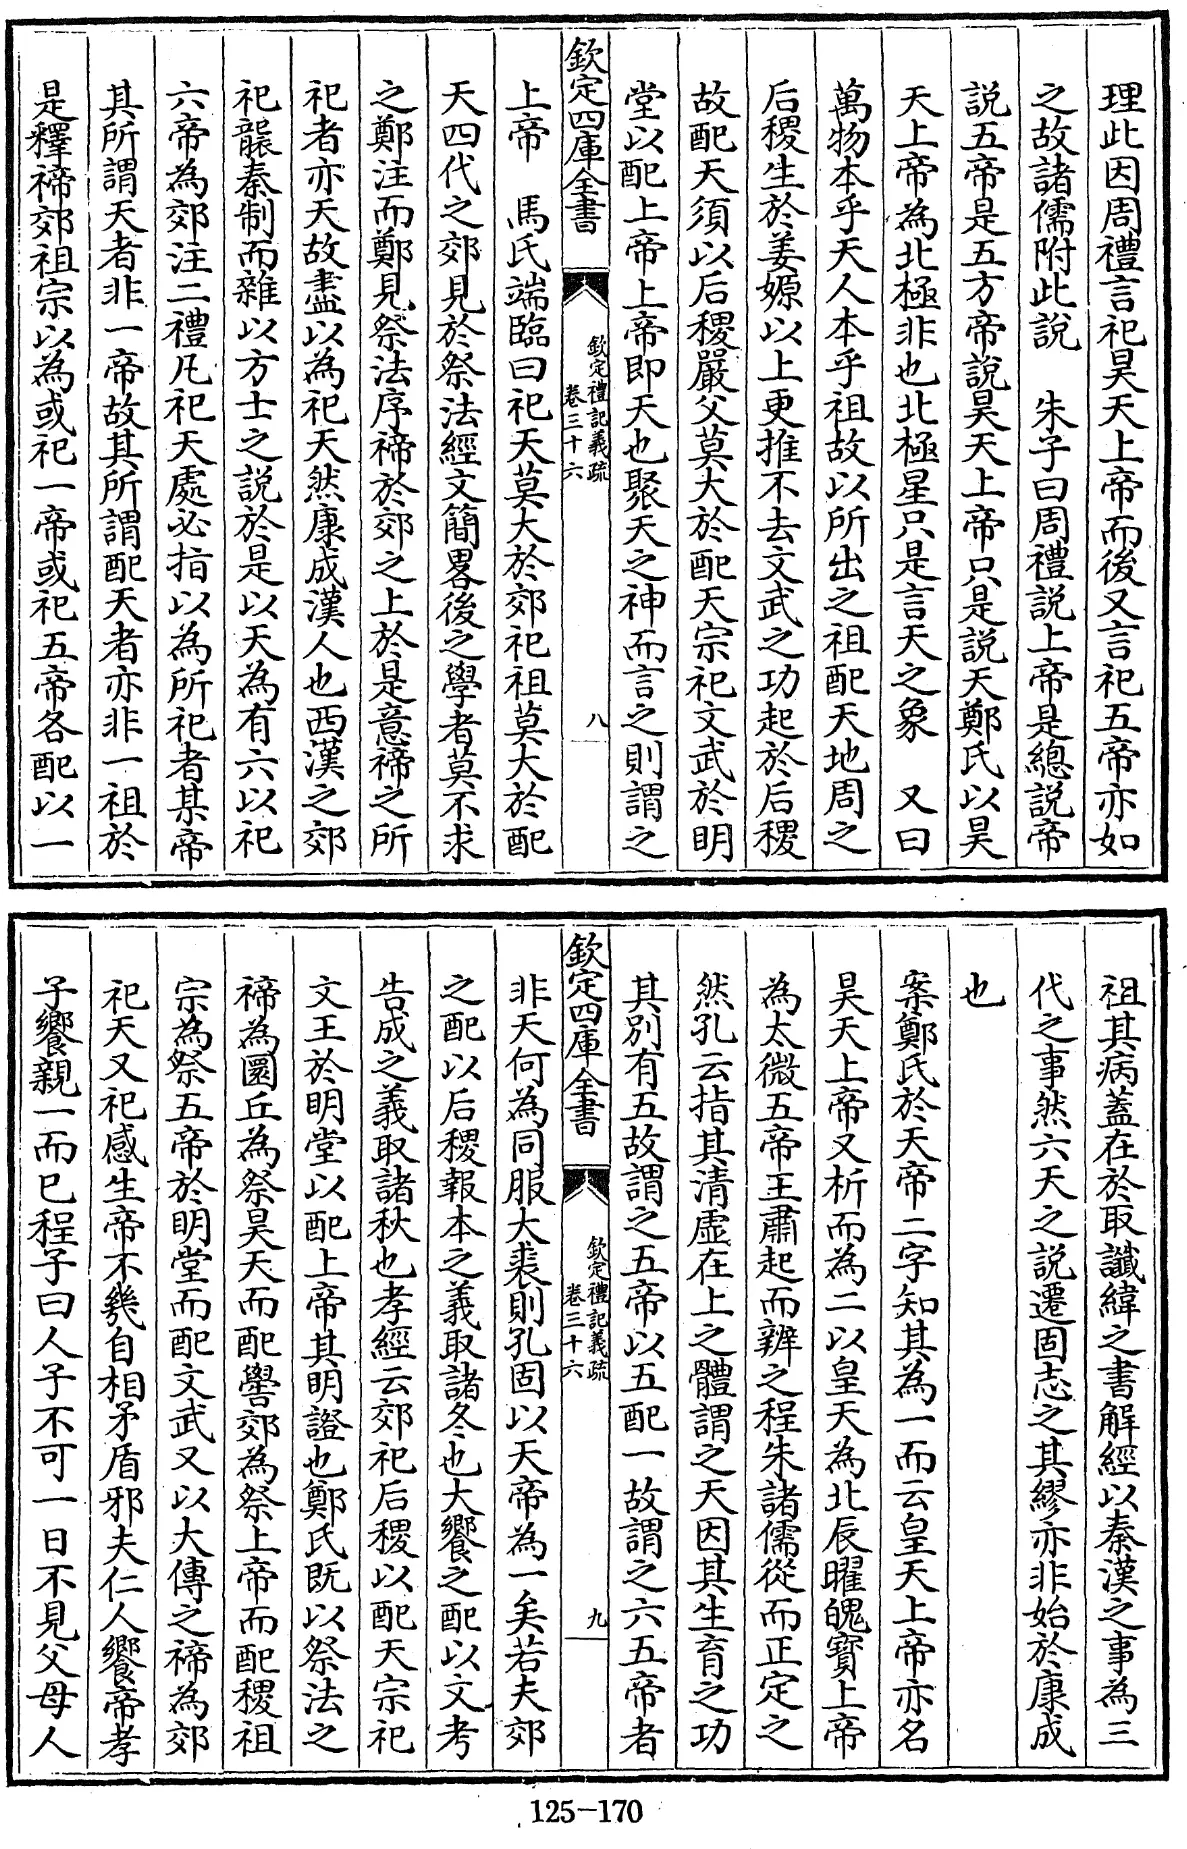 理此因周禮言祀昊天上帝而後又言祀五帝亦如
之故諸儒附此說　朱子曰周禮説上帝是總説帝
説五帝是五方帝説昊天上帝只是説天鄭氏以昊
天上帝為北極非也北極星只是言天之象　又曰
萬物本乎天人本乎祖故以所出之祖配天地周之
后稷生於姜嫄以上更推不去文武之功起於后稷
故配天須以后稷嚴父莫大於配天宗祀文武於明
堂以配上帝上帝即天也聚天之神而言之則謂之
欽定四庫全書
欽定禮記義疏
卷三十六
八
上帝　馬氏端臨曰祀天莫大於郊祀祖莫大於配
天四代之郊見於祭法經文簡畧後之學者莫不求
之鄭注而鄭見祭法序禘於郊之上於是意禘之所
祀者亦天故盡以為祀天然康成漢人也西漢之郊
祀襲秦制而雜以方士之説於是以天為有六以祀
六帝為郊注二禮凡祀天處必指以為所祀者某帝
其所謂天者非一帝故其所謂配天者亦非一祖於
是釋禘郊祖宗以為或祀一帝或祀五帝各配以一
祖其病蓋在於取讖緯之書解經以秦漢之事為三
代之事然六天之説遷固志之其繆亦非始於康成
也
案鄭氏於天帝二字知其為一而云皇天上帝亦名
昊天上帝又析而為二以皇天為北辰曜魄寶上帝
為太微五帝王肅起而辨之程朱諸儒從而正定之
然孔云指其清虛在上之體謂之天因其生育之功
其別有五故謂之五帝以五配一故謂之六五帝者
欽定四庫全書
欽定禮記義疏
卷三十六
九
非天何為同服大裘則孔固以天帝為一矣若夫郊
之配以后稷報本之義取諸冬也大饗之配以文考
告成之義取諸秋也孝經云郊祀后稷以配天宗祀
文王於明堂以配上帝其明證也鄭氏既以祭法之
禘為圜丘為祭昊天而配嚳郊為祭上帝而配稷祖
宗為祭五帝於明堂而配文武又以大傳之禘為郊
祀天又祀感生帝不幾自相矛盾邪夫仁人饗帝孝
子饗親一而已程子曰人子不可一日不見父母人
125-170